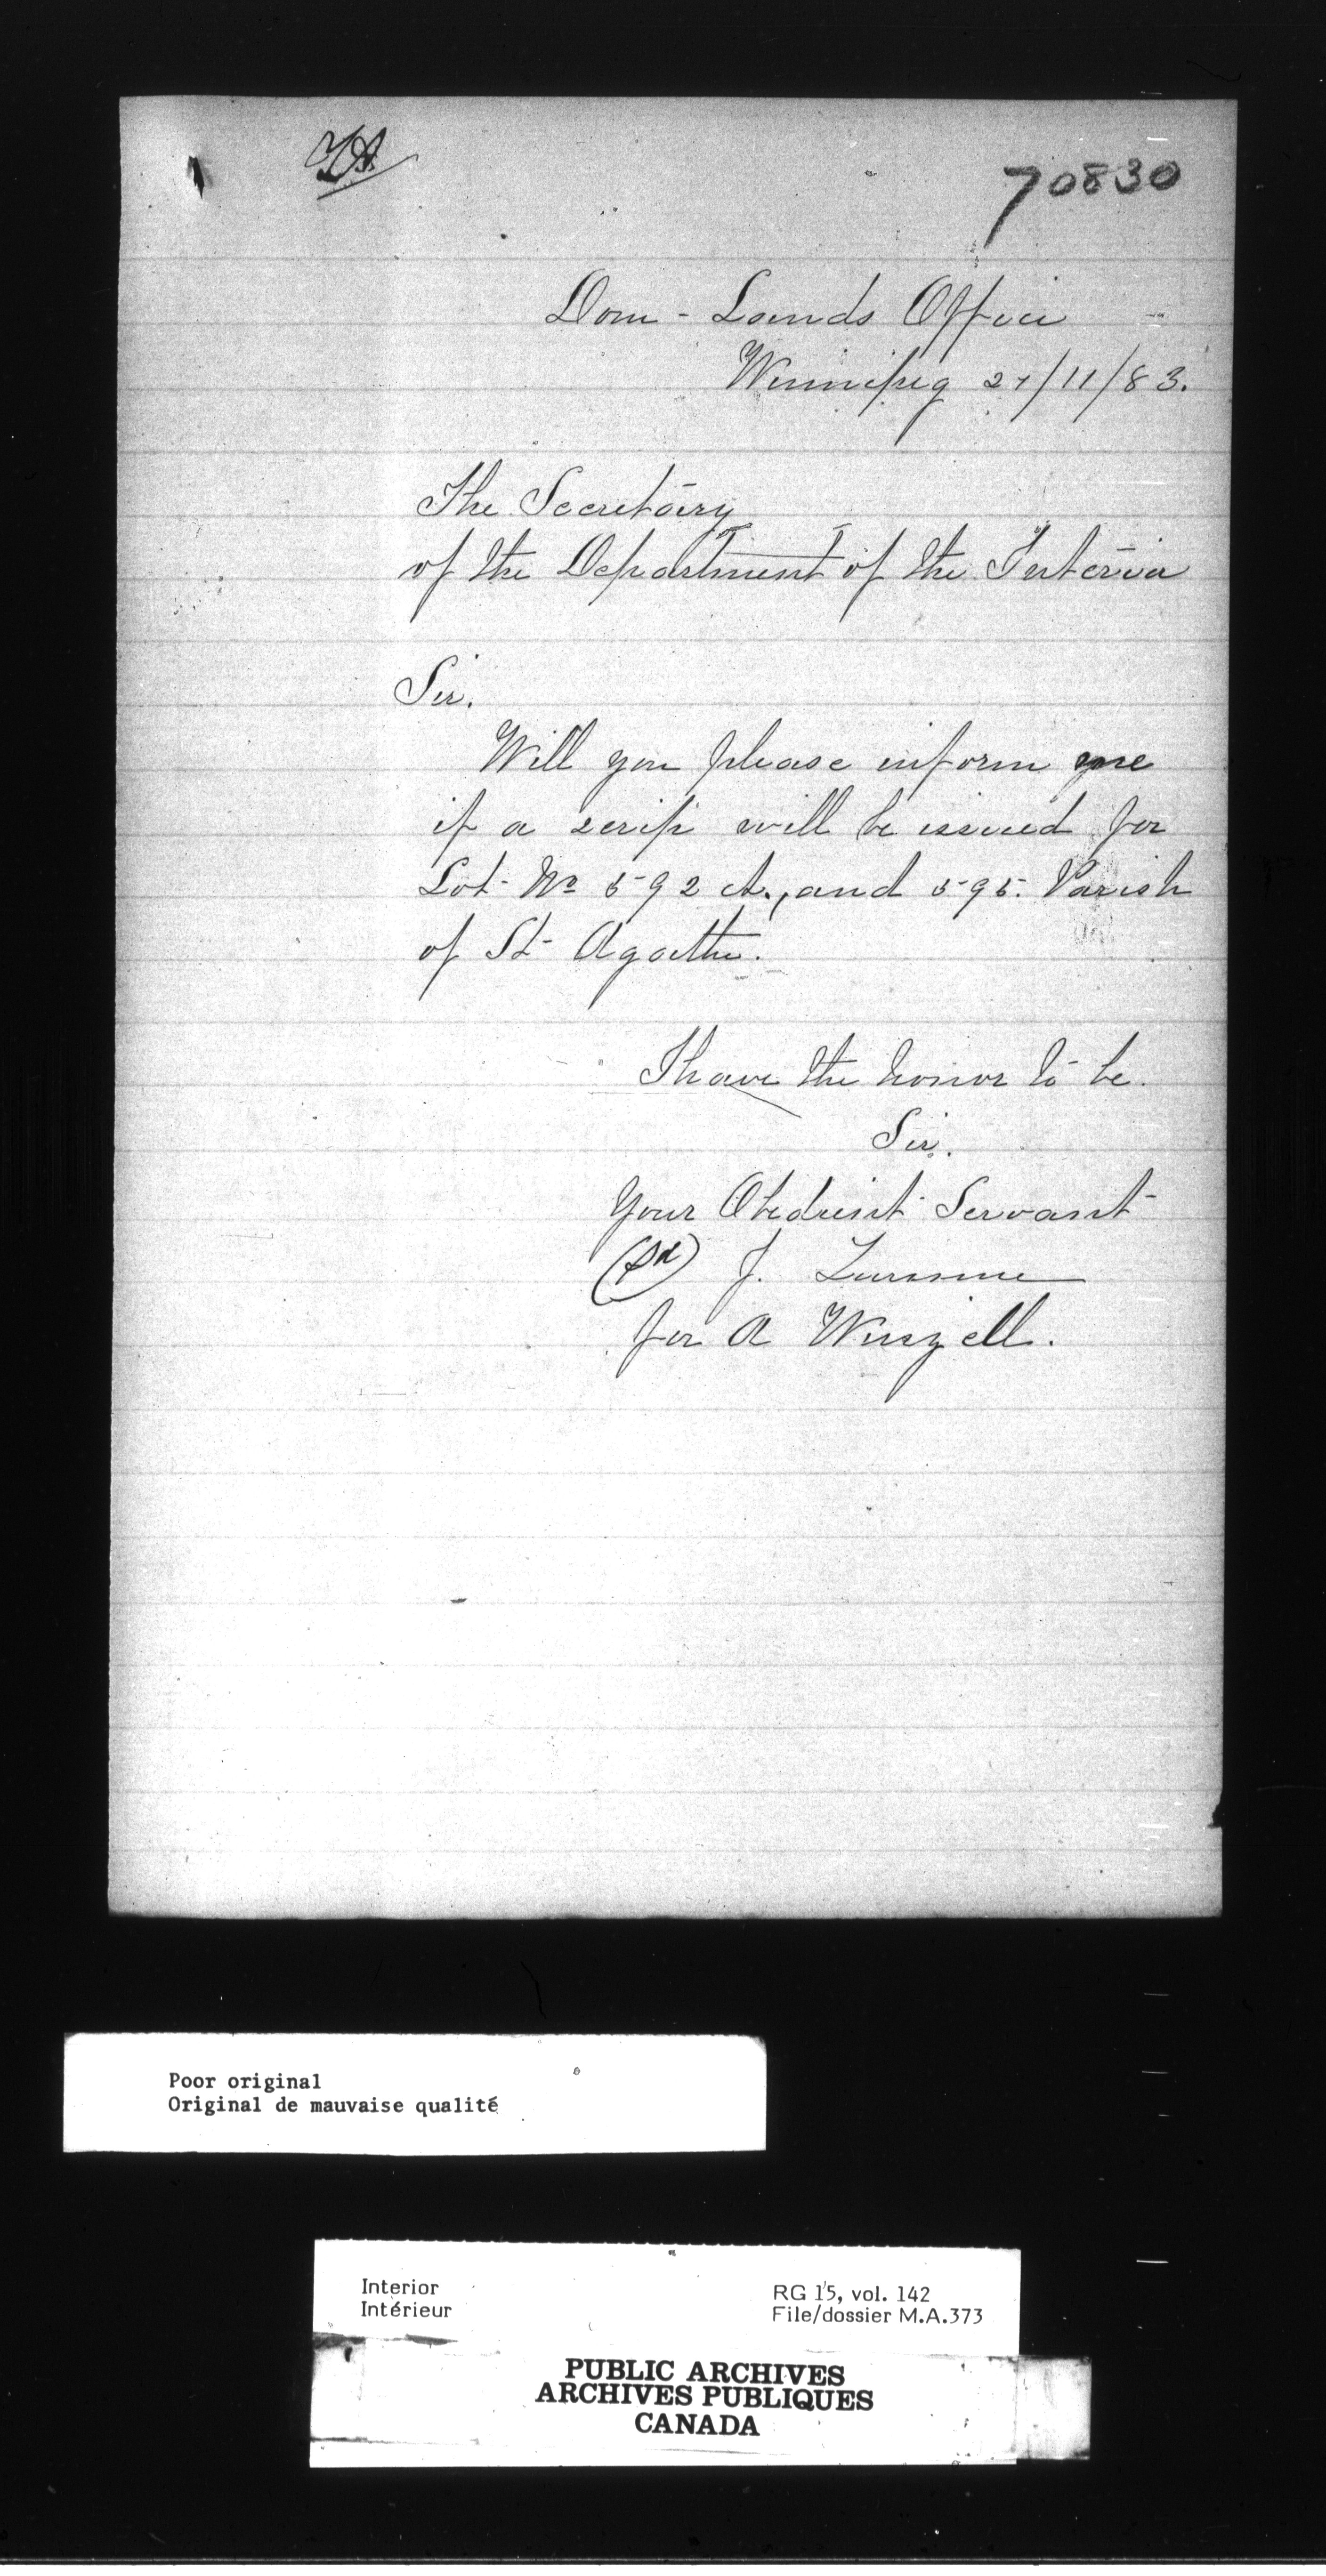 70830
Dom - Lands Office
Winnipeg 27/11/83.
The Secretary
of the Department of the Interior
Sir.
Will you please inform me
if a scrip will be issued for
Lot No 592 A., and 595. Parish
of St Agathe.
I have the honor to be.
Sir.
Your Obedient Servant
(Sd) J. Turenne
for A
Poor original
Original de mauvaise qualité
Interior
Intérieur
RG 15, vol. 142
File/dossier M.A.373
PUBLIC ARCHIVES
ARCHIVES PUBLIQUES
CANADA